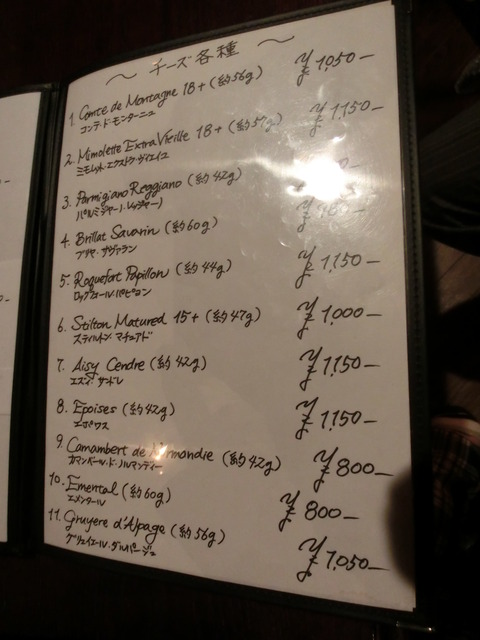 ～ チーズ各種 ～
1. Comte de Montagne 18+ (約56g) ¥1,050-
コンテ・ド・モンターニュ
2. Mimolette Extra Vieille 18+ (約57g) ¥1,150-
ミモレット・エクストラ・ヴィエイユ
3. Parmigiano Reggiano (約42g)
パルミジャーノ・レッジャーノ
4. Brillat Savarin (約60g)
ブリヤ・サヴァラン
5. Roquefort Papillon (約44g) ¥1,150-
ロックフォール・パピヨン
6. Stilton Matured 15+ (約47g) ¥1,000-
スティルトン・マチュアド
7. Aisy Cendre (約42g) ¥1,150-
エズィ・サンドレ
8. Epoises (約42g) ¥1,150-
エポワス
9. Camambert de Normandie (約42g) ¥800-
カマンベール・ド・ノルマンディー
10. Emental (約60g) ¥800-
エメンタール
11. Gruyere d'Alpage (約56g) ¥1,050-
グリュイエール・ダルパージュ